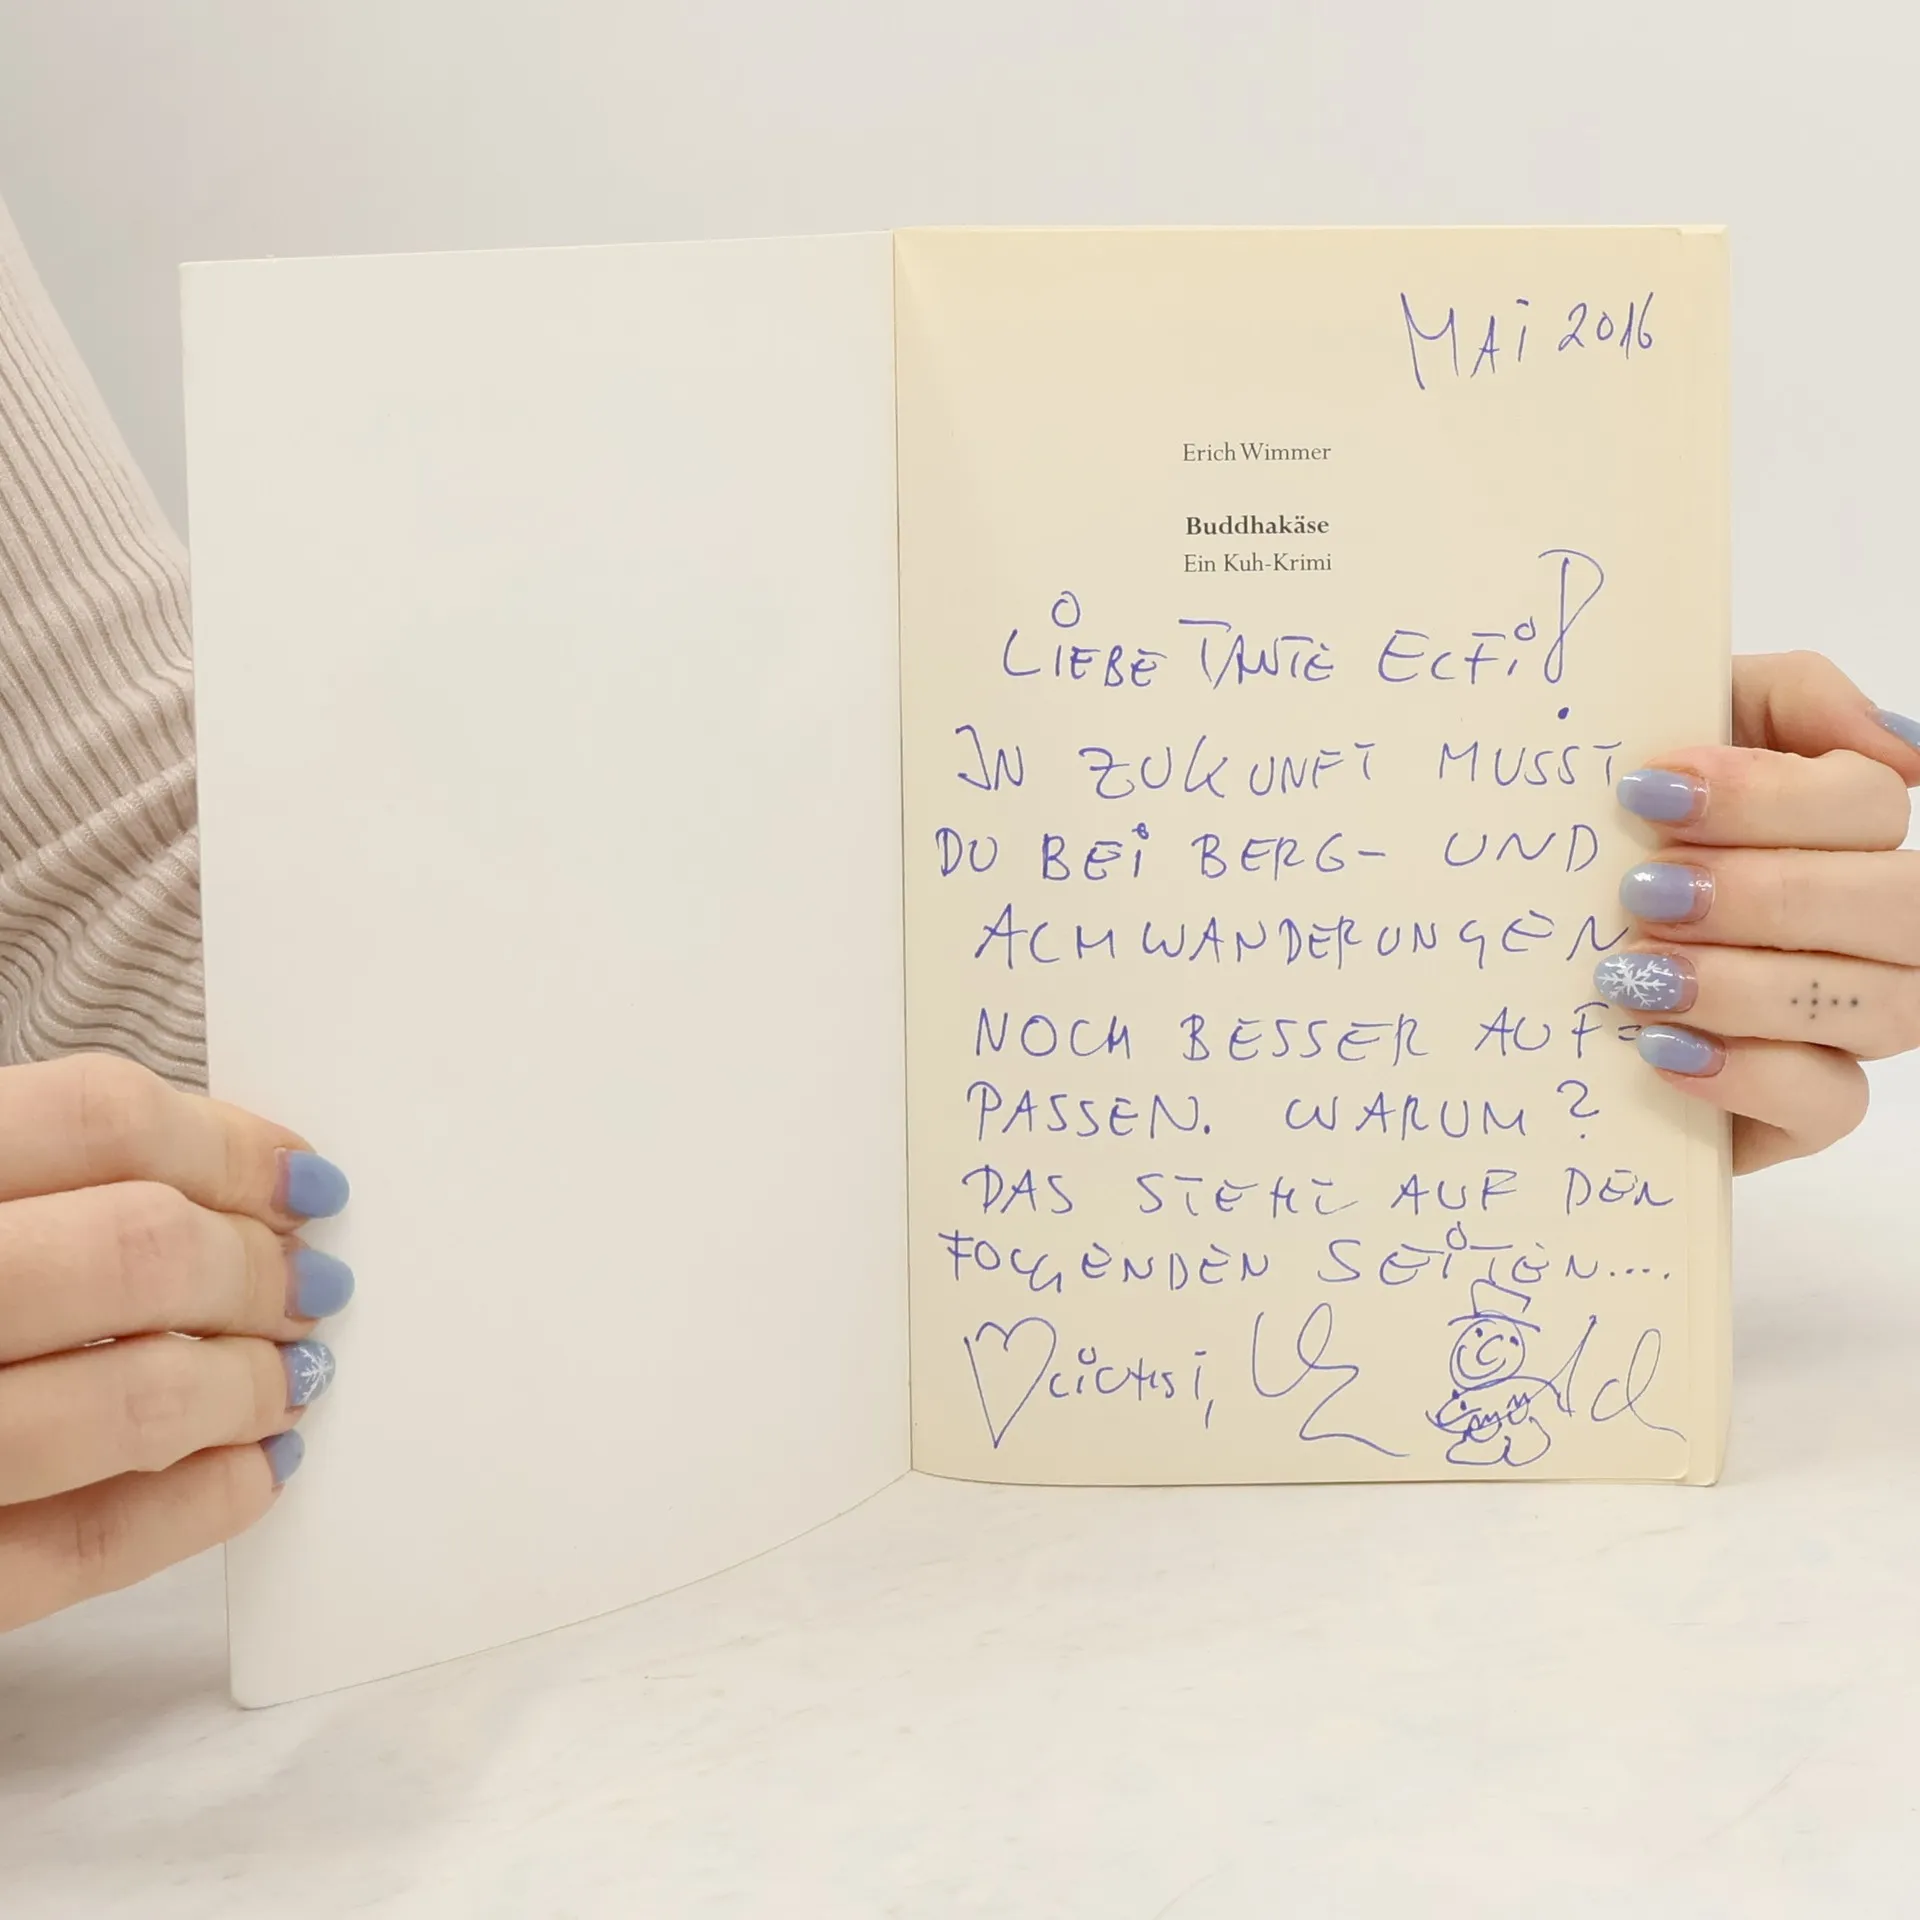 MAI 2016
Erich Wimmer
Buddhakäse
Ein Kuh-Krimi
LIEBE TANTE ELFI!
IN ZUKUNFT MUSST
DU BEI BERG- UND
ALMWANDERUNGEN
NOCH BESSER AUF=
PASSEN. WARUM?
DAS STEHT AUF DEN
FOLGENDEN SEITEN....
LICHST,